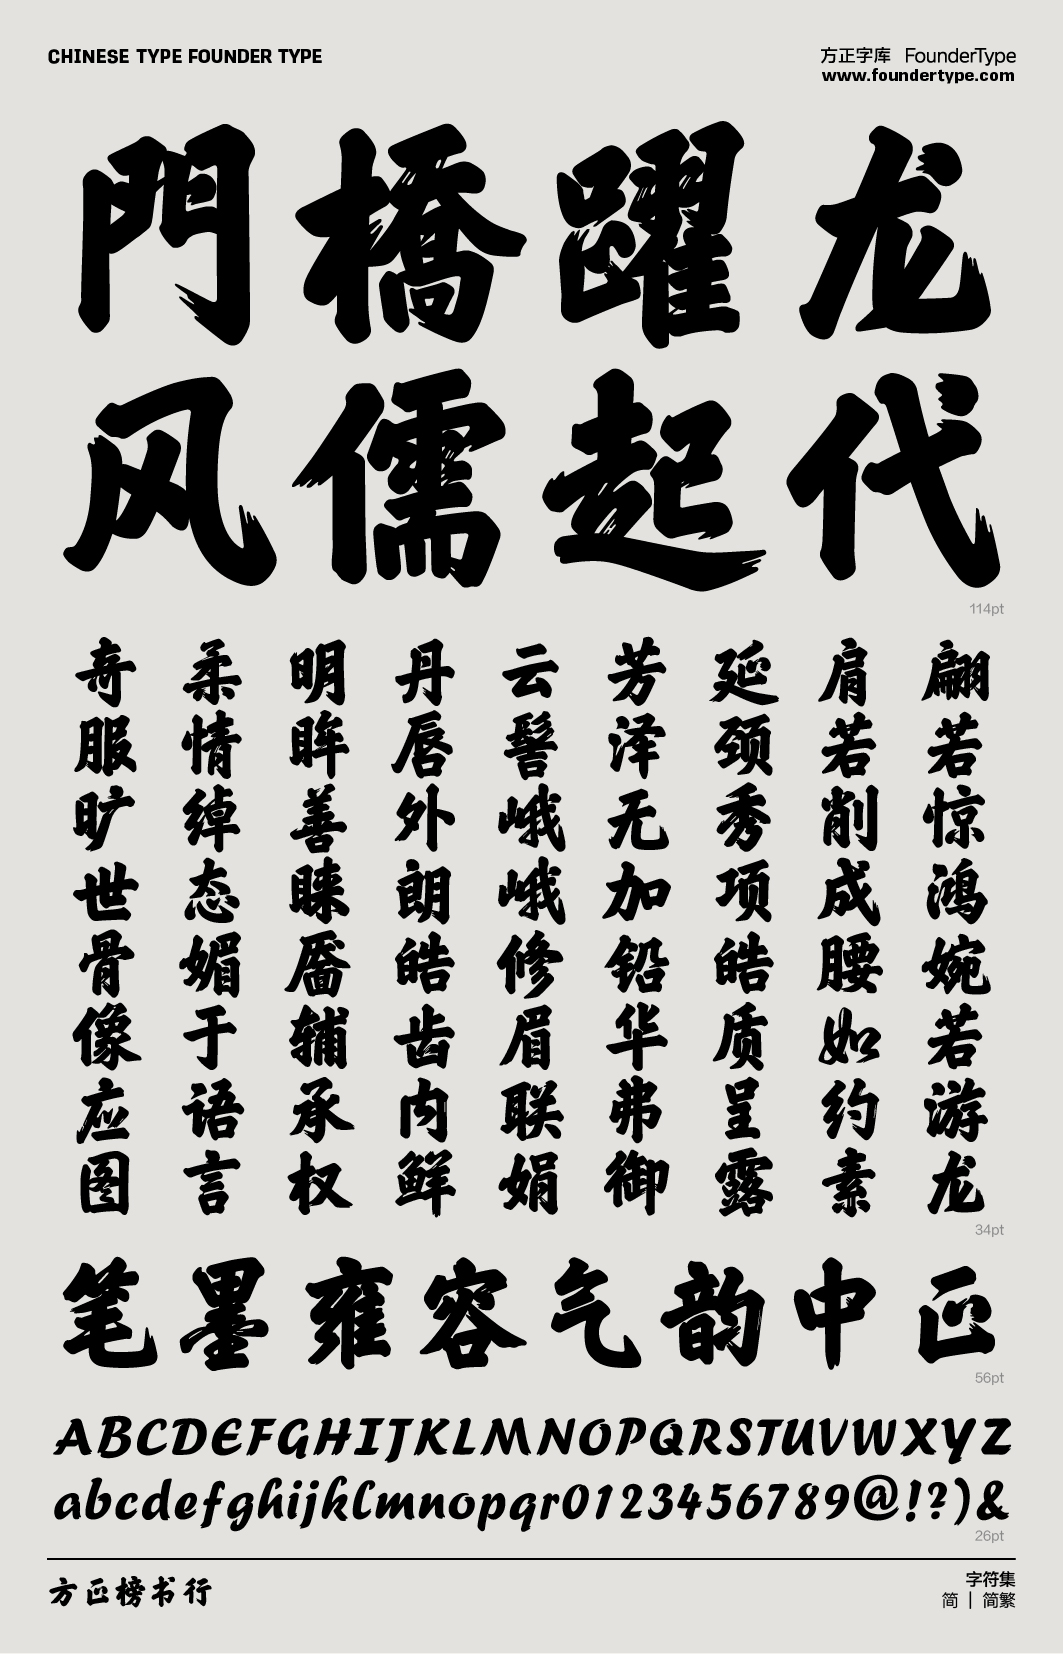 CHINESE TYPE FOUNDER TYPE
方正字库 FounderType
www.foundertype.com
龙躍橋門
代起儒风
114pt
翩若惊鸿婉若游龙
肩若削成腰如约素
延颈秀项皓质呈露
芳泽无加铅华弗御
云髻峨峨修眉联娟
丹唇外朗皓齿内鲜
明眸善睐靥辅承权
柔情绰态媚于语言
奇服旷世骨像应图
34pt
笔墨雍容气韵中正
56pt
ABCDEFGHIJKLMNOPQRSTUVWXYZ
abcdefghijklmnopqr0123456789@!?)&
26pt
方正榜书行
字符集
简 | 简繁